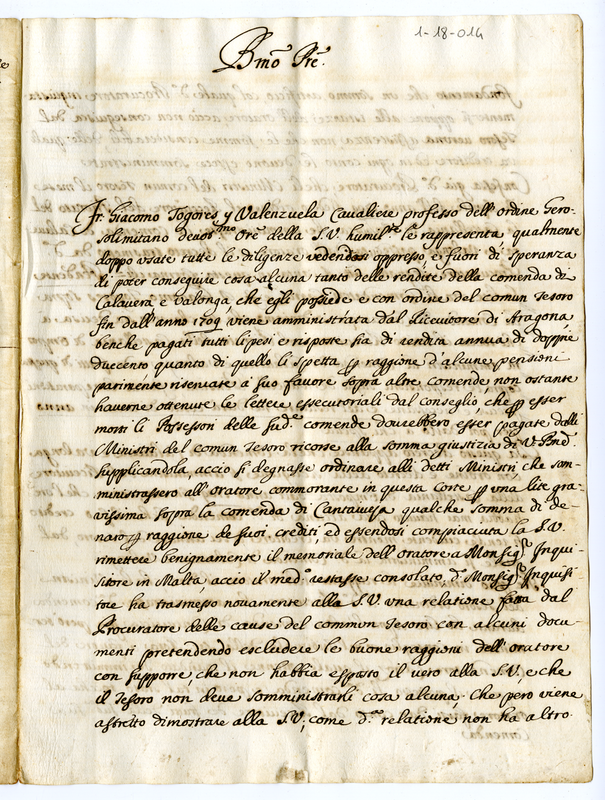 1-18-014
Bmõ Prẽ.
Fr. Giacomo Togores, y Valenzuela Cavaliere professo dell'ordine Gero-
solimitano deuotmo Orẽ della S.V. humilte le rappresenta, qualmente
doppo usate tutte le diligenze vedendosi oppresso, e fuori di speranza
di poter conseguire cosa alcuna tanto delle rendite della comenda di
Calauera e Valonga, che egli possiede e con ordine del comun Tesoro
fin dall'anno 1709 viene amministrata dal Riceuitore di Aragona,
benche pagati tutti li pesi e risposte sia di rendita annua di doppie
duecento quanto di quello li spetta p raggione d'alcune pensioni
parimente riseruate à suo fauore sopra altre comende, non ostante
hauerne ottenute le lettere essecutoriali dal conseglio, che p esser
morti li Possessori delle sude comende dourebbero esser pagate dalli
Ministri del comun Tesoro ricorse alla somma giustizia di V. Bnẽ
supplicandola, accio si degnasse ordinare alli detti Ministri, che som-
ministrassero all'oratore commorante in questa Corte p vna lite gra-
vissima sopra la comenda di Cantauespa qualche somma di de-
naro p raggione de suoi crediti, ed essendosi compiaciuta la S.V.
rimettere benignamente il memoriale dell'oratore a Monsigr Inqui-
sitore in Malta, accio il medo restasse consolato, do Monsigr Inquisi-
tore ha trasmesso nouamente alla S.V. vna relatione fatta dal
Procuratore delle cause del commun Tesoro con alcuni docu-
menti pretendendo escludere le buone raggioni dell'oratore
con supporre, che non habbia esposto il vero alla S.V. e che
il Tesoro non deue somministrarli cosa alcuna. Che pero viene
astretto dimostrare alla S.V, come da relatione non ha altro